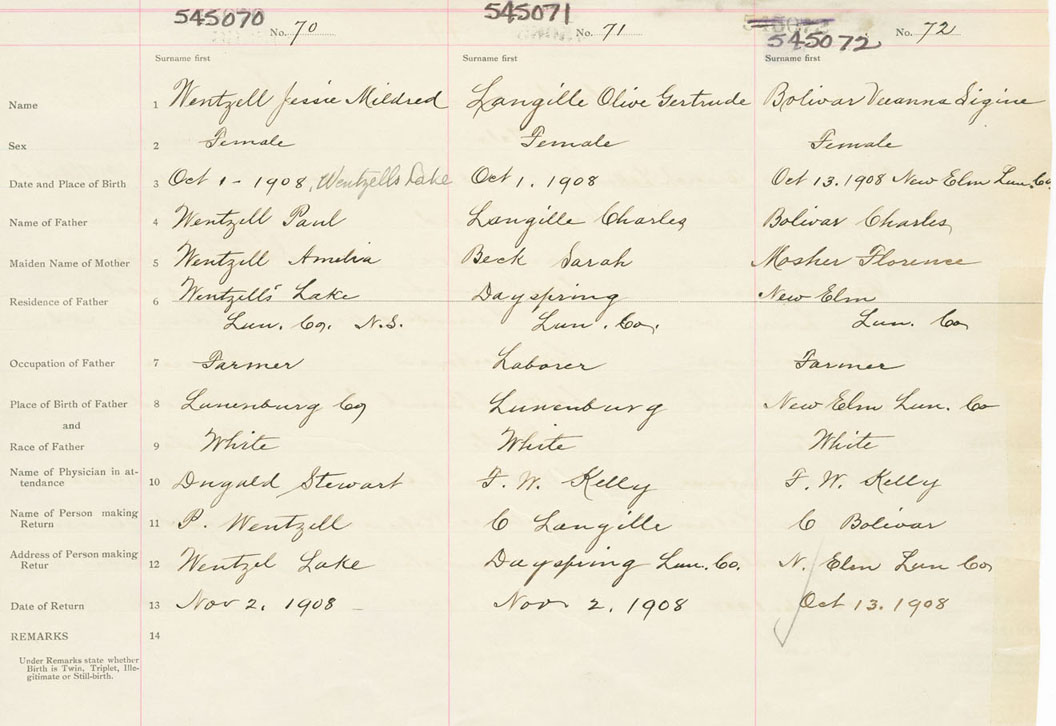 545070 545071 545072
No. 70 No. 71 No. 72
Surname first Surname first Surname first
Name 1 Wentzell Jessie Mildred Langille Olive Gertrude Bolivar Veanna
Sex 2 Female Female Female
Date and Place of Birth 3 Oct 1 - 1908, Wentzells Lake Oct 1. 1908 Oct 13. 1908 New Elm Lun. Co.
Name of Father 4 Wentzell Paul Langille Charles Bolivar Charles
Maiden Name of Mother 5 Wentzell Amelia Beck Sarah Mosher Florence
Residence of Father 6 Wentzells' Lake Dayspring New Elm
Lun. Co. N.S. Lun. Co. Lun. Co
Occupation of Father 7 Farmer Laborer Farmer
Place of Birth of Father 8 Lunenburg Co Lunenburg New Elm Lun. Co
and
Race of Father 9 White White White
Name of Physician in at-
tendance 10 Dugald Stewart F. W. Kelly F. W. Kelly
Name of Person making
Return 11 P. Wentzell C Langille C Bolivar
Address of Person making
Retur 12 Wentzel Lake Dayspring Lun. Co. N. Elm Lun Co
Date of Return 13 Nov 2. 1908 Nov. 2, 1908 Oct 13. 1908
REMARKS 14
Under Remarks state whether
Birth is Twin, Triplet, Ille-
gitimate or Still-birth.